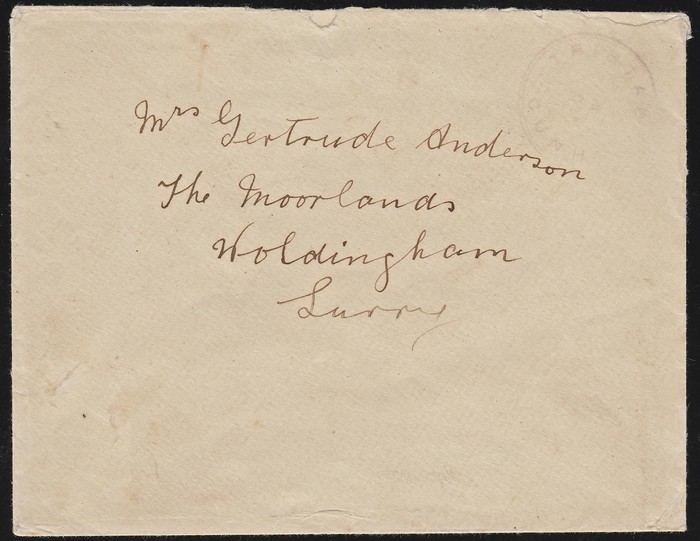 Mrs Gertrude Anderson
The Moorlands
Woldingham
Surry